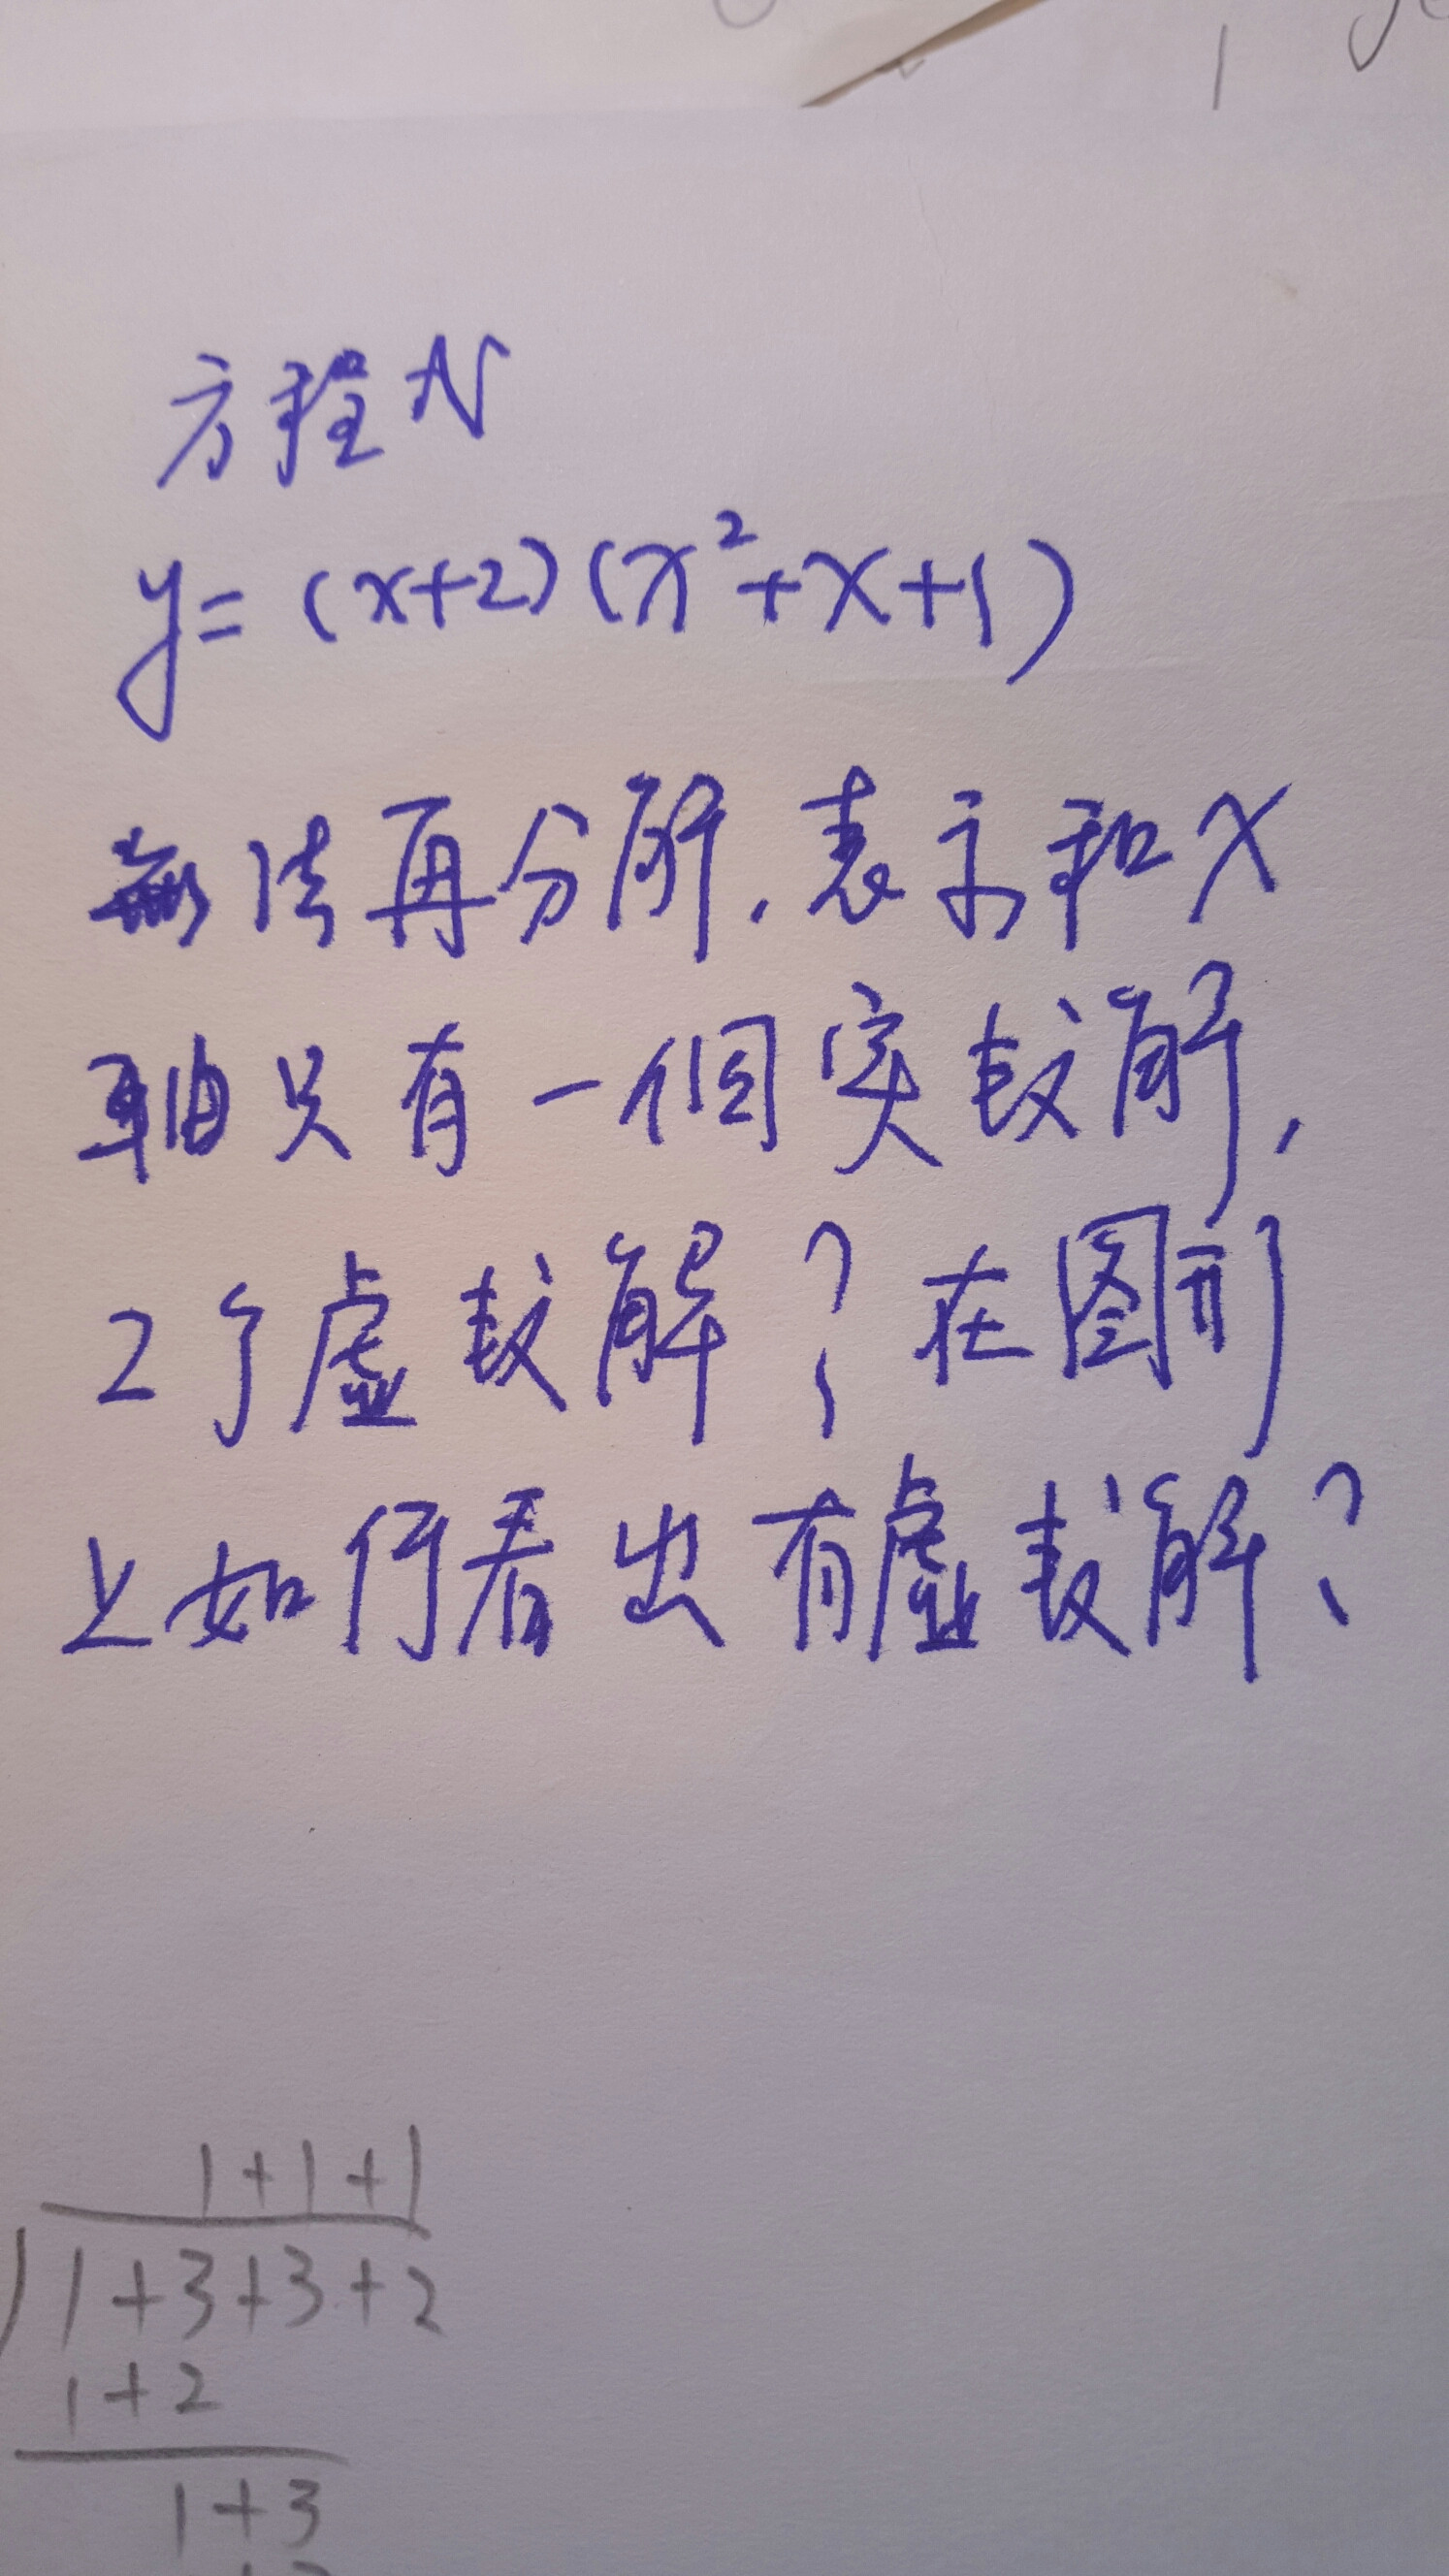 方程式
y=(x+2)(x²+x+1)
無法再分解.表示和X
軸只有一個実数解,
2个虚数解?在图形
上如何看出有虚数解?
1+1+1
1+3+3+2
1+2
1+3